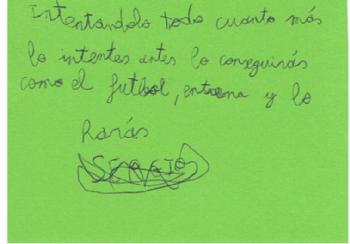 Intentandolo todo cuanto más
lo intentes antes lo conseguirás
como el futbol, entrena y lo
Rarás
SERGIO